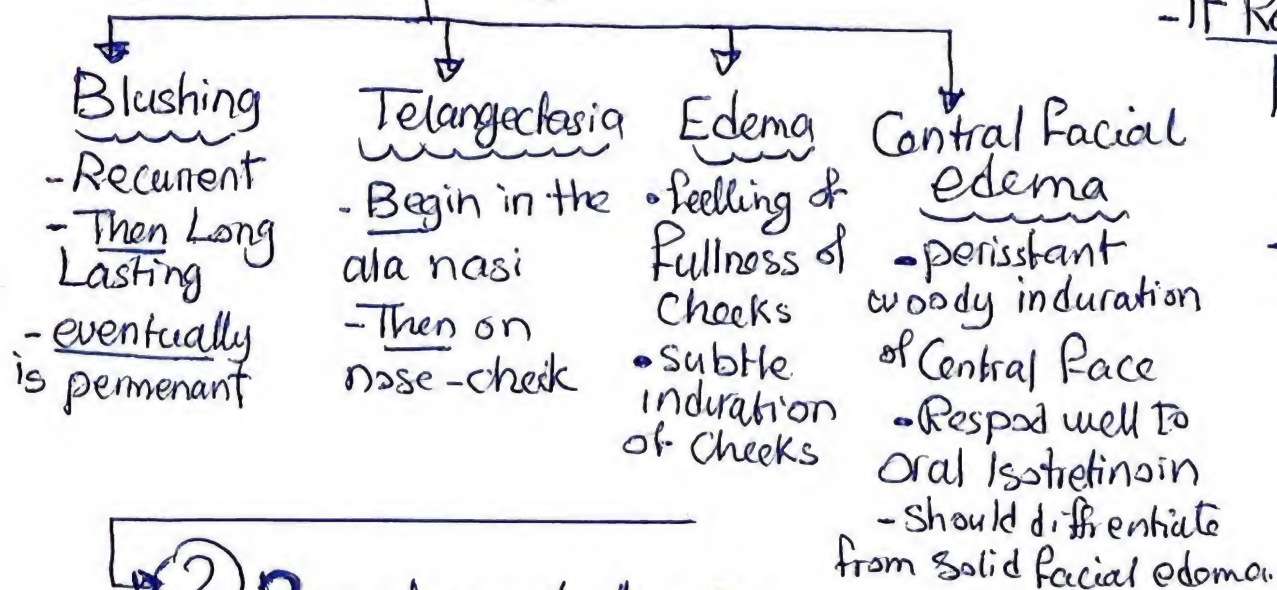 Blushing
- Recurrent
- Then Long
Lasting
- eventually
is permenant
Telangectasia
- Begin in the
ala nasi
- Then on
nose-cheek
Edema
• feelling of
fullness of
Cheeks
• subtle
induration
of Cheeks
Central facial
edema
• perisstant
woody induration
of Central face
• Respod well to
Oral Isotretinoin
- Should diffrentiate
from solid facial edema.
- If
2